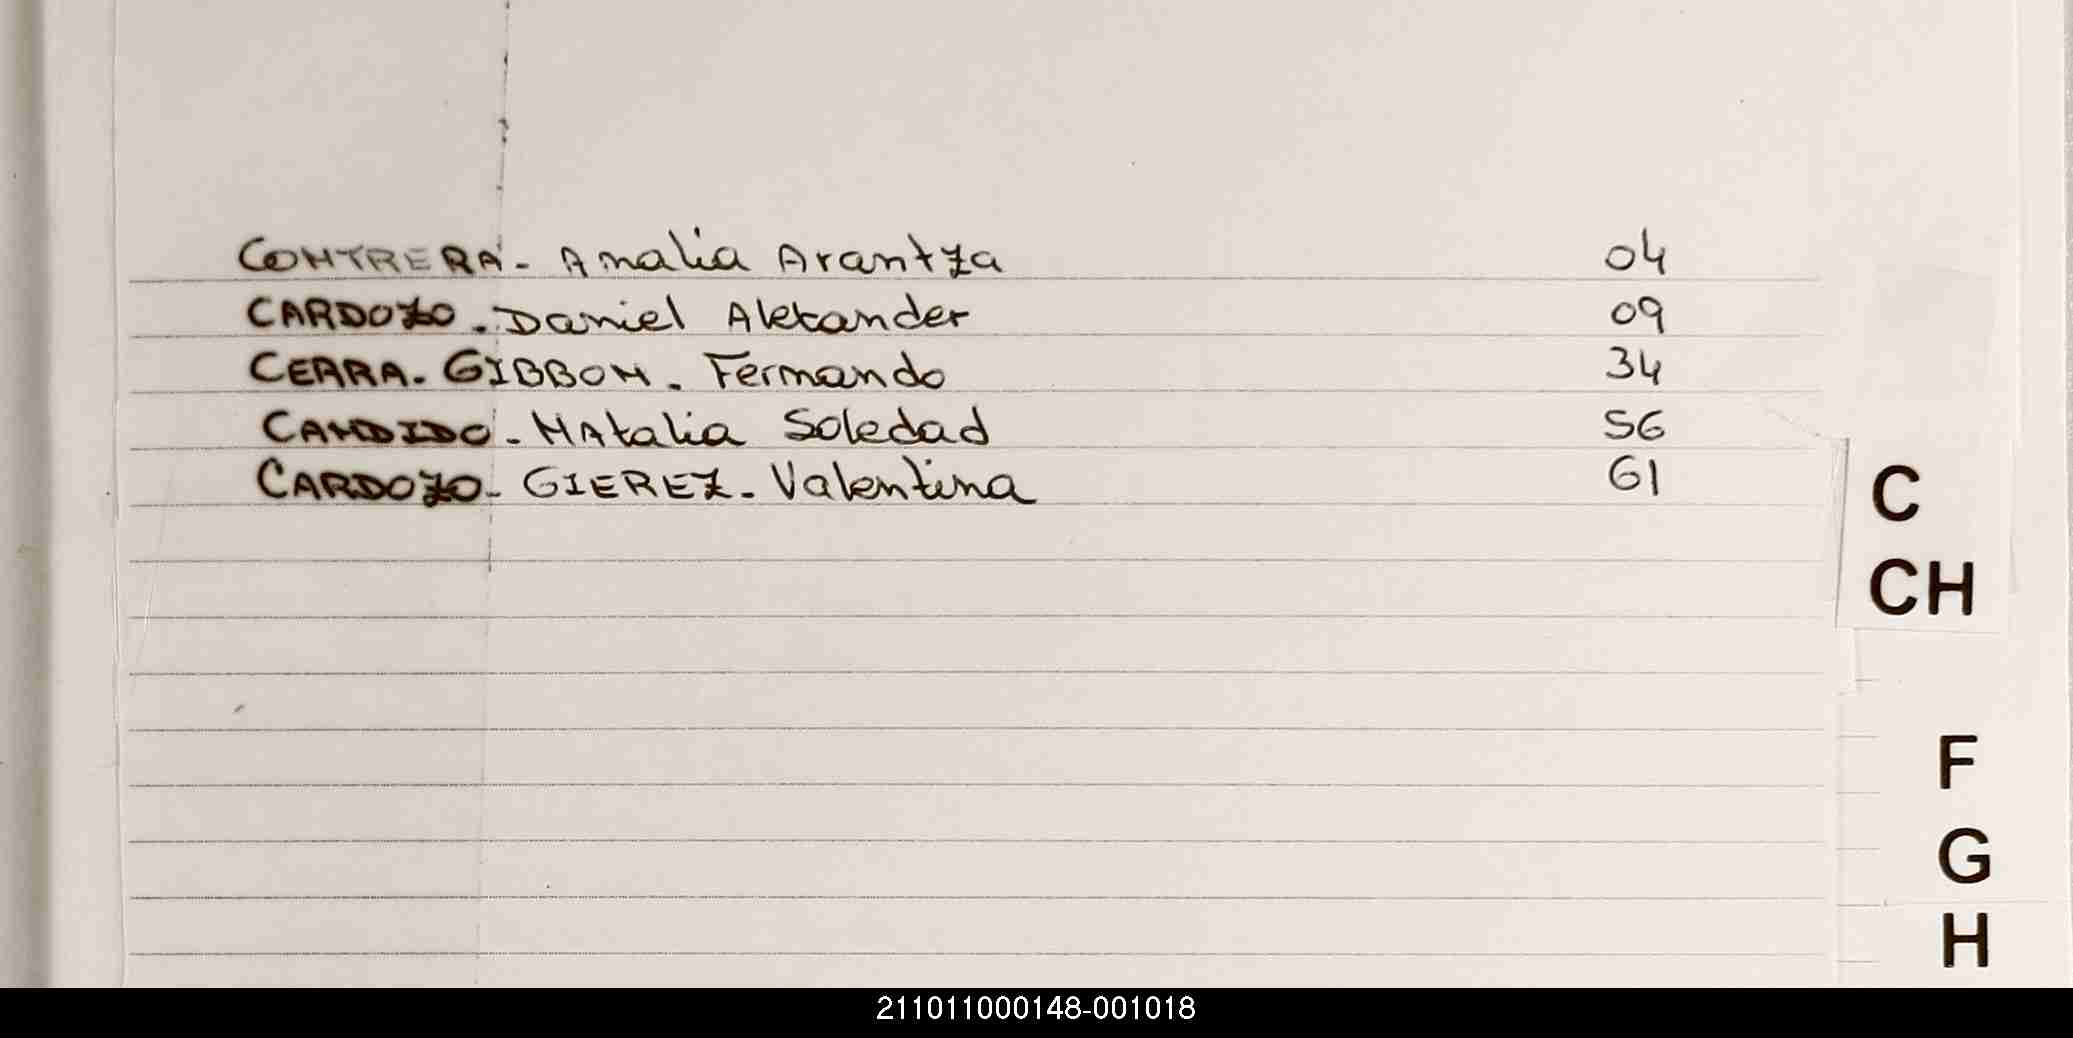 CONTRERA - Analia Arantza 04
CARDOZO - Daniel Alexander 09
CERRA - GIBBON - Fernando 34
CANDIDO - NAtalia Soledad 56
CARDOZO - GIEREZ - Valentina 61
C
CH
F
G
H
211011000148-001018